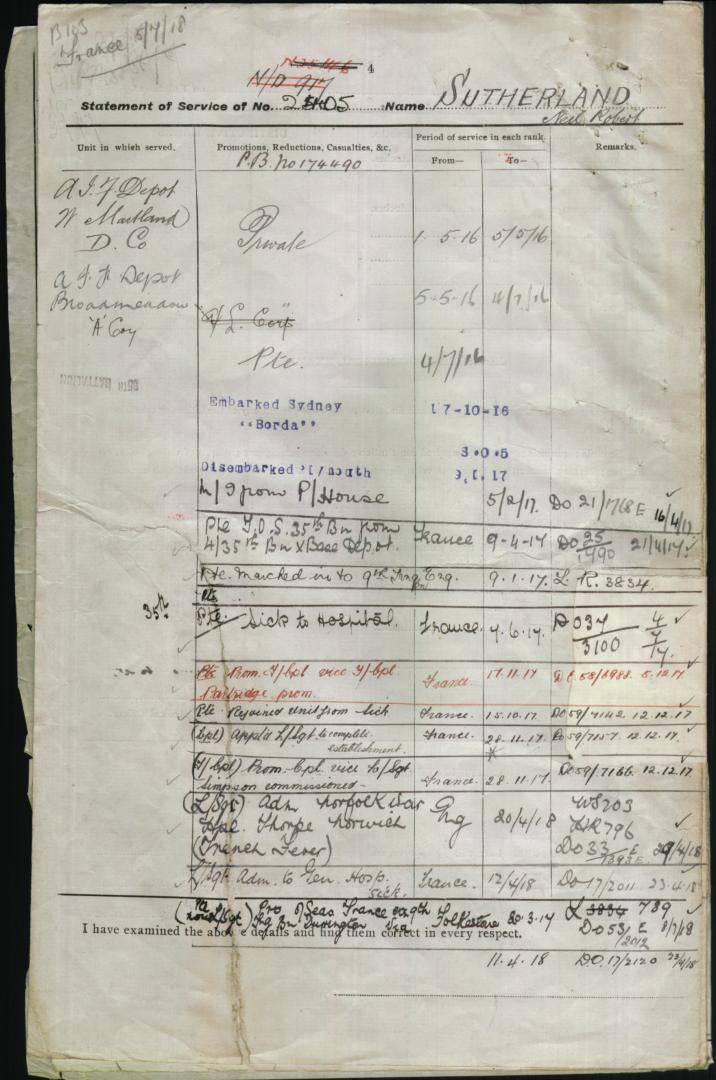 B103
France 5/7/18
4
Statement of Service of No. 2405 Name SUTHERLAND
Neil Robert
Unit in which served.
Promotions, Reductions, Casualties, &c.
Period of service in each rank.
From—
To—
Remarks.
P.B. No 174490
A.I.F. Depot
W Maitland
D. Co
Private
1-5-16
5/5/16
A I F Depot
Broadmeadow
'A' Coy
5-5-16
4/7/16
Pte.
4/7/16
35TH BATTALION
Embarked Sydney
17-10-16
"Borda"
Disembarked
9.1.17
M/I from P/House
5/2/17.
Do 21/1768 E
16/4/17
Pte T.O.S. 35th Bn from
4/35th Bn x Base Depot.
France
9-4-17
Do 25/1490
21/4/17
Pte. Marched in to 9th Trng Bn Eng.
9.1.17.
L. R. 3834.
Pte
35th
Pte. Sick to Hospital.
France.
7.6.17.
DO 37/3100
4/7/17.
Pte Prom. T/Cpl vice T/Cpl
Partridge prom.
France.
17.11.17
DO.58/6988. 5.12.17
Pte. Rejoined Unit from Sick
France.
15.10.17.
Do59/7142. 12.12.17
(Cpl) App'd L/Sgt to complete
establishment.
France.
28.11.17.
Do59/7157. 12.12.17
(T/Cpl) Prom. Cpl. vice
Simpson commissioned
France.
28.11.17.
Do59/7166. 12.12.17
(L/Sgt) Adm Norfolk War
Hpl. Thorpe Norwich
(Trench Fever)
Eng
20/4/18
HR796
Do33/1393E. 29/4/18
L/Sgt. Adm. to Gen. Hosp.
Sick.
France.
12/4/18
Do 17/2011 23.4.18
(Pte now L/Sgt) Pro O/Seas France ex 9th
Trg Bn Durrington Via Folkestone
30.3.17
L 3834 789
Do 53/2012 E 8/7/18
I have examined the above details and find them correct in every respect.
11.4.18
DO.17/2120 23/4/18